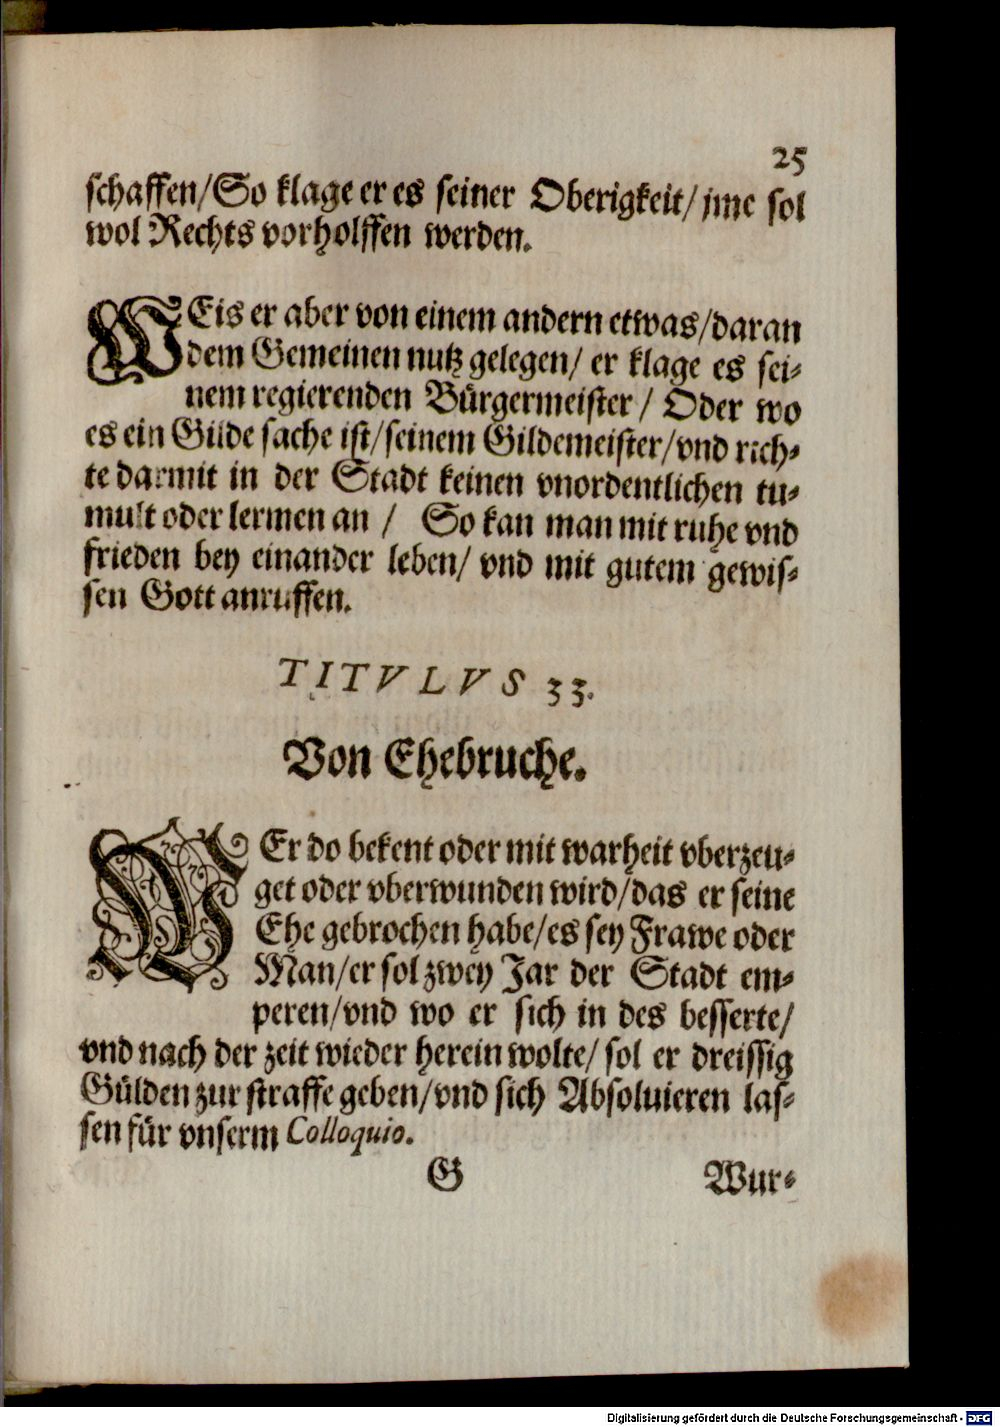 25
schaffen/So klage er es seiner Oberigkeit/ jme sol
wol Rechts vorholffen werden.
WEis er aber von einem andern etwas/daran
dem Gemeinen nutz gelegen/ er klage es sei-
nem regierenden Bürgermeister/ Oder wo
es ein Gilde sache ist/seinem Gildemeister/vnd rich-
te darmit in der Stadt keinen vnordentlichen tu-
mult oder lermen an / So kan man mit ruhe vnd
frieden bey einander leben/ vnd mit gutem gewis-
sen Gott anruffen.
TITVLVS 33.
Von Ehebruche.
WEr do bekent oder mit warheit vberzeu-
get oder vberwunden wird/das er seine
Ehe gebrochen habe/es sey Frawe oder
Man/er sol zwey Jar der Stadt em-
peren/vnd wo er sich in des besserte/
vnd nach der zeit wieder herein wolte/ sol er dreissig
Gülden zur straffe geben/vnd sich Absoluieren las-
sen für vnserm Colloquio.
G Wur-
Digitalisierung gefördert durch die Deutsche Forschungsgemeinschaft - DFG